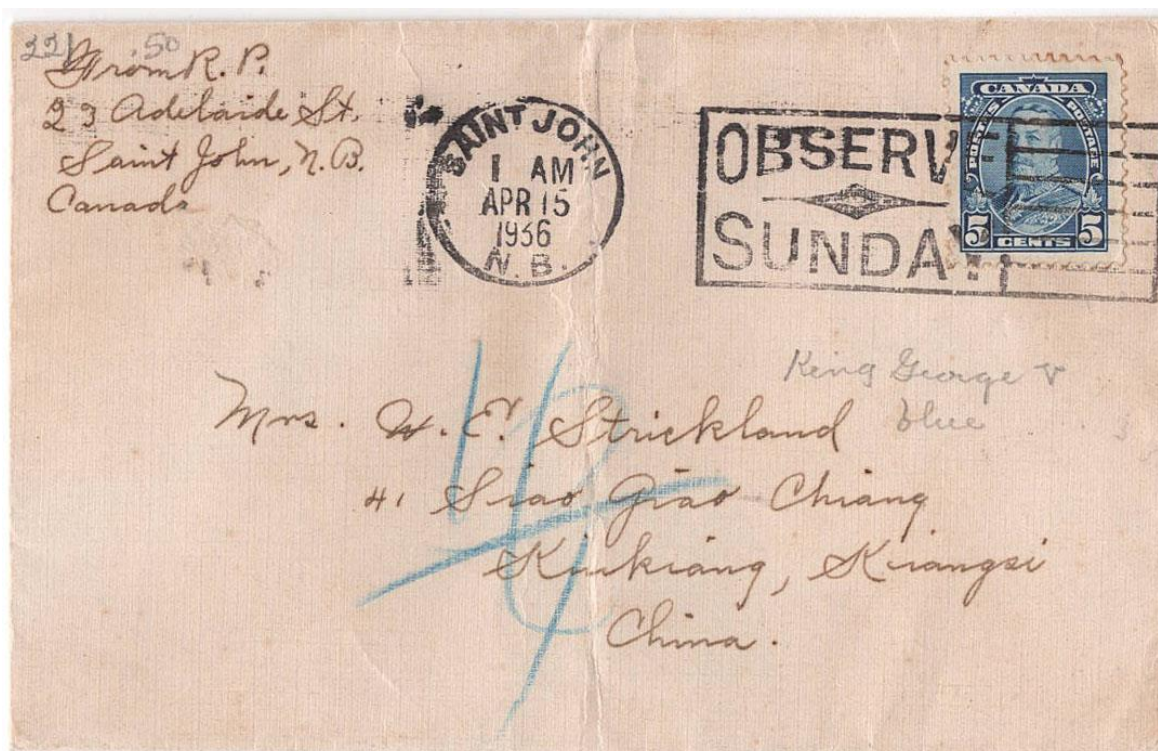 221 .50
From R. P.
23 Adelaide St.
Saint John, N.B.
Canada
SAINT JOHN
1 AM
APR 15
1936
N.B.
OBSERVE
SUNDAY
CANADA
POSTES POSTAGE
5 CENTS 5
King George V
blue
Mrs. W. E. Strickland
41 Siao Giao Chiang
Kiukiang, Kiangsi
China.